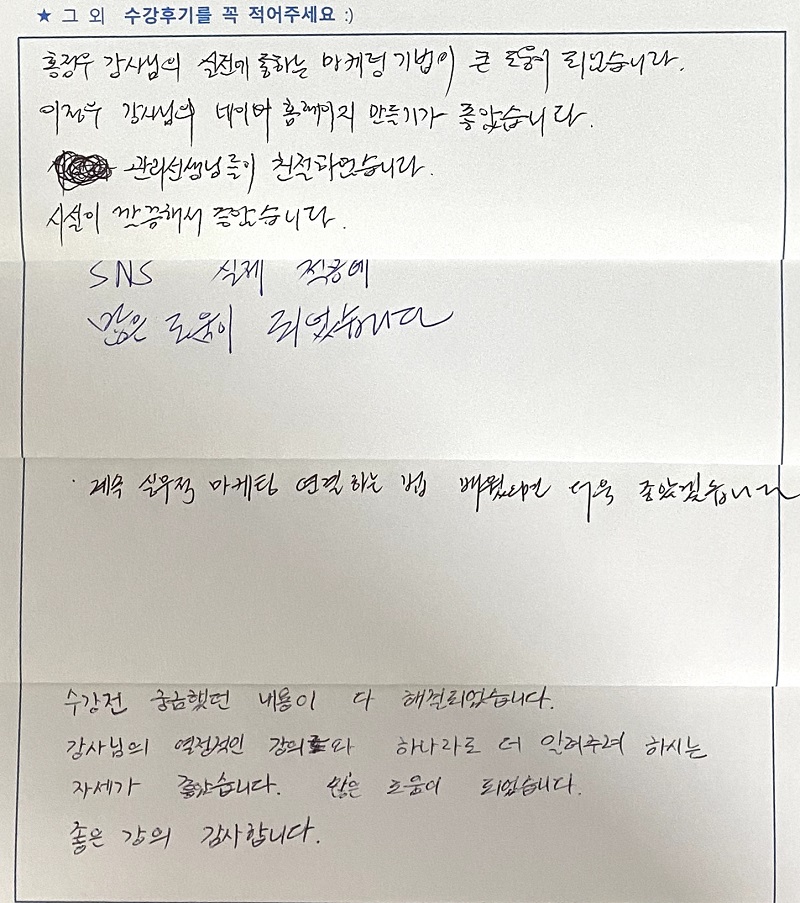 ★ 그 외 수강후기를 꼭 적어주세요 :)
홍정우 강사님의 실전에 통하는 마케팅 기법이 큰 도움이 되었습니다.
이정우 강사님의 네이버 홈페이지 만들기가 좋았습니다.
관리선생님들이 친절하였습니다.
시설이 깔끔해서 좋았습니다.
SNS 실제 적용에
많은 도움이 되었습니다
· 계속 실무적 마케팅 연결하는 법 배웠으면 더욱 좋았겠습니다
수강전 궁금했던 내용이 다 해결되었습니다.
강사님의 열정적인 강의와 하나라도 더 알려주려 하시는
자세가 좋았습니다. 많은 도움이 되었습니다.
좋은 강의 감사합니다.